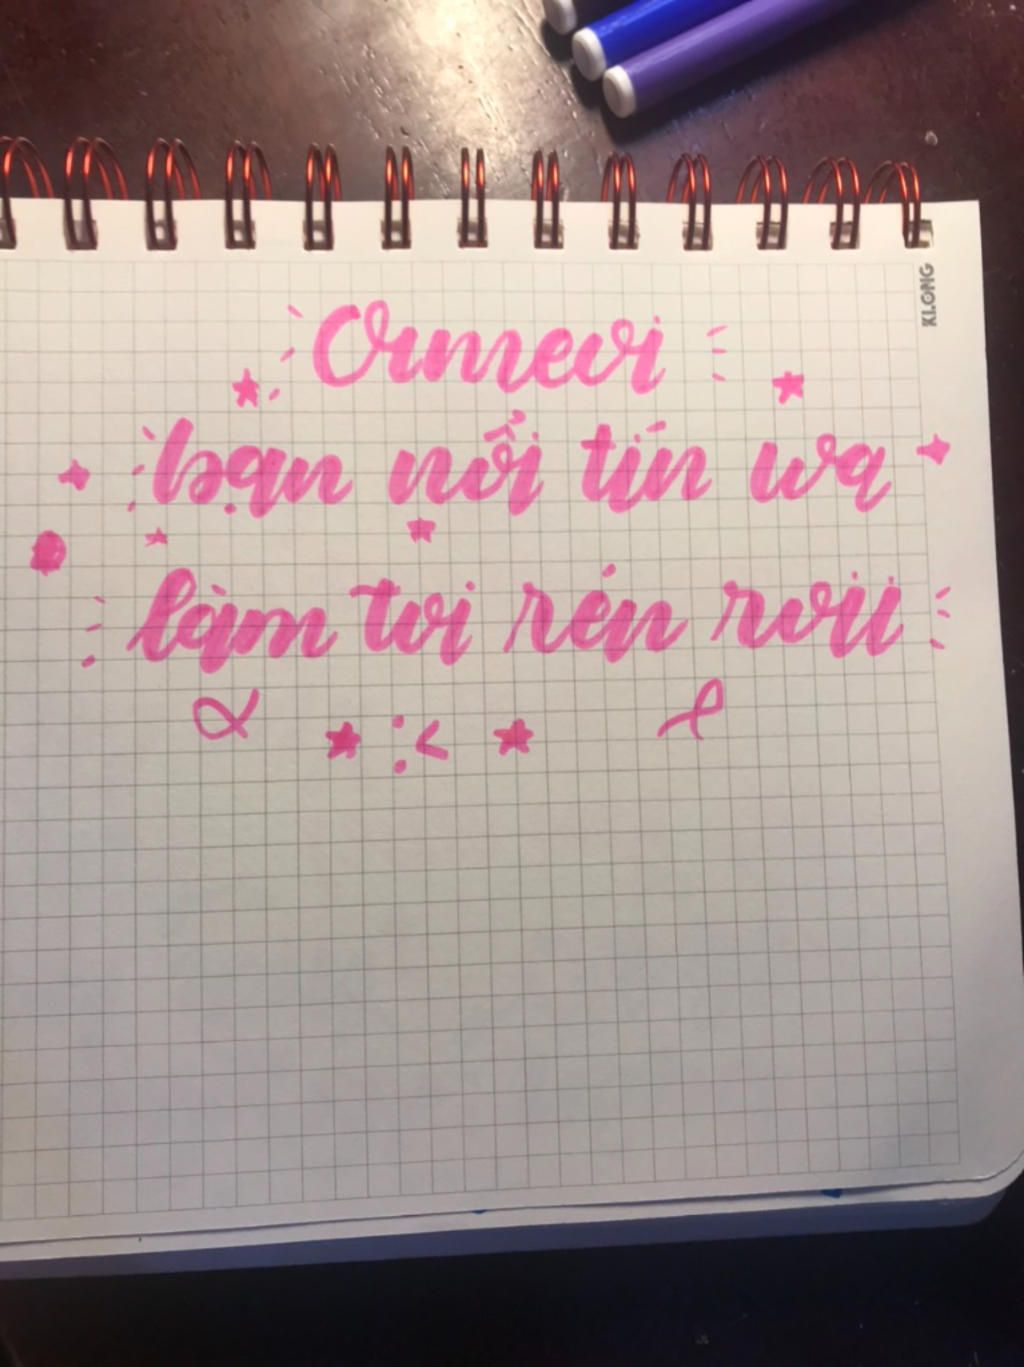 Ormeoi
bạn nổi tín wa
làm toi rén roiii
:<
KLONG